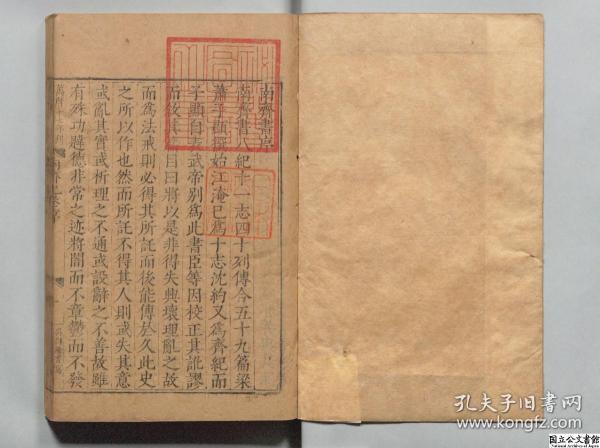 南齊書序
南齊書八紀十一志四十列傳今五十九篇梁
蕭子顯撰始江淹已爲十志沈約又爲齊紀而
子顯自表武帝別爲此書臣等因校正其訛謬
而敘其目曰將以是非得失興壞理亂之故
而爲法戒則必得其所託而後能傳於久此史
之所以作也然而所託不得其人則或失其意
或亂其實或析理之不通或設辭之不善故雖
有殊功韙德非常之迹將闇而不章鬱而不發
孔夫子旧书网
www.kongfz.com
国立公文書館
National Archives of Japan